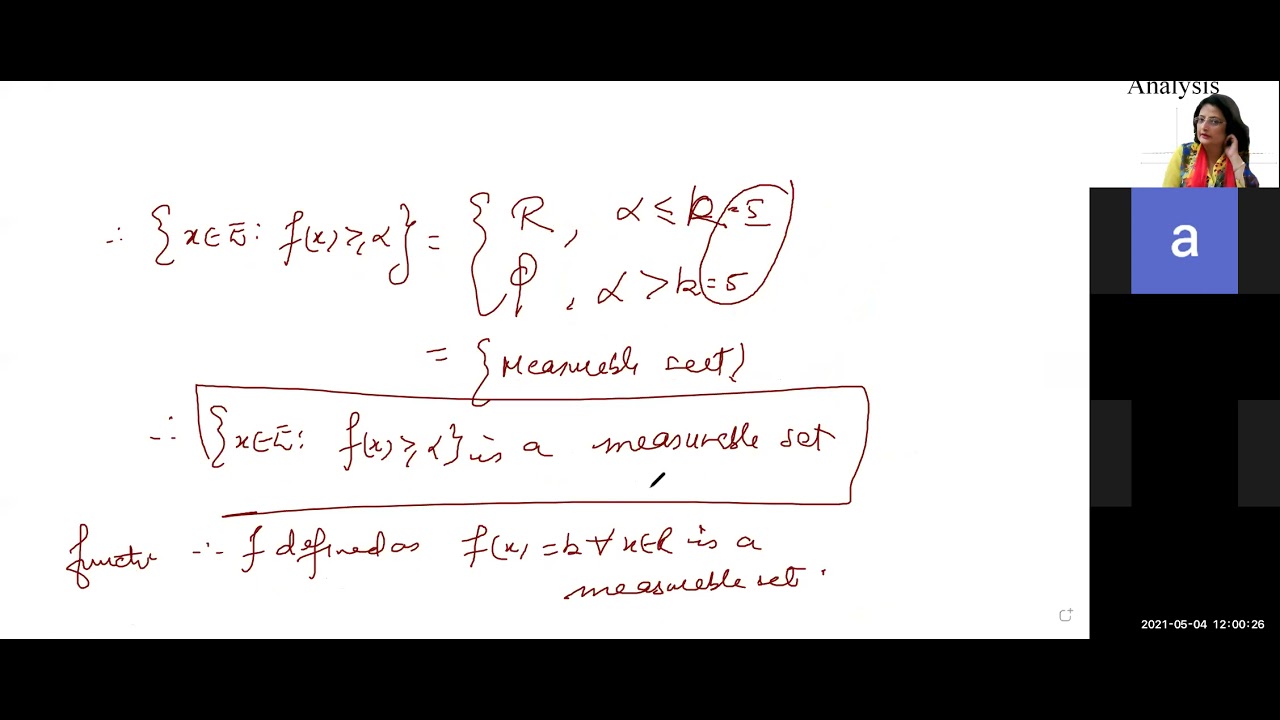 Analysis
∴ {x∈E: f(x) ≥ α} = { R, α ≤ k = 5
φ, α > k = 5
= {Measurable set}
∴ {x∈E: f(x) ≥ α} is a measurable set
functn ∴ f defined as f(x) = k ∀ x∈R is a
measurable set.
a
2021-05-04 12:00:26